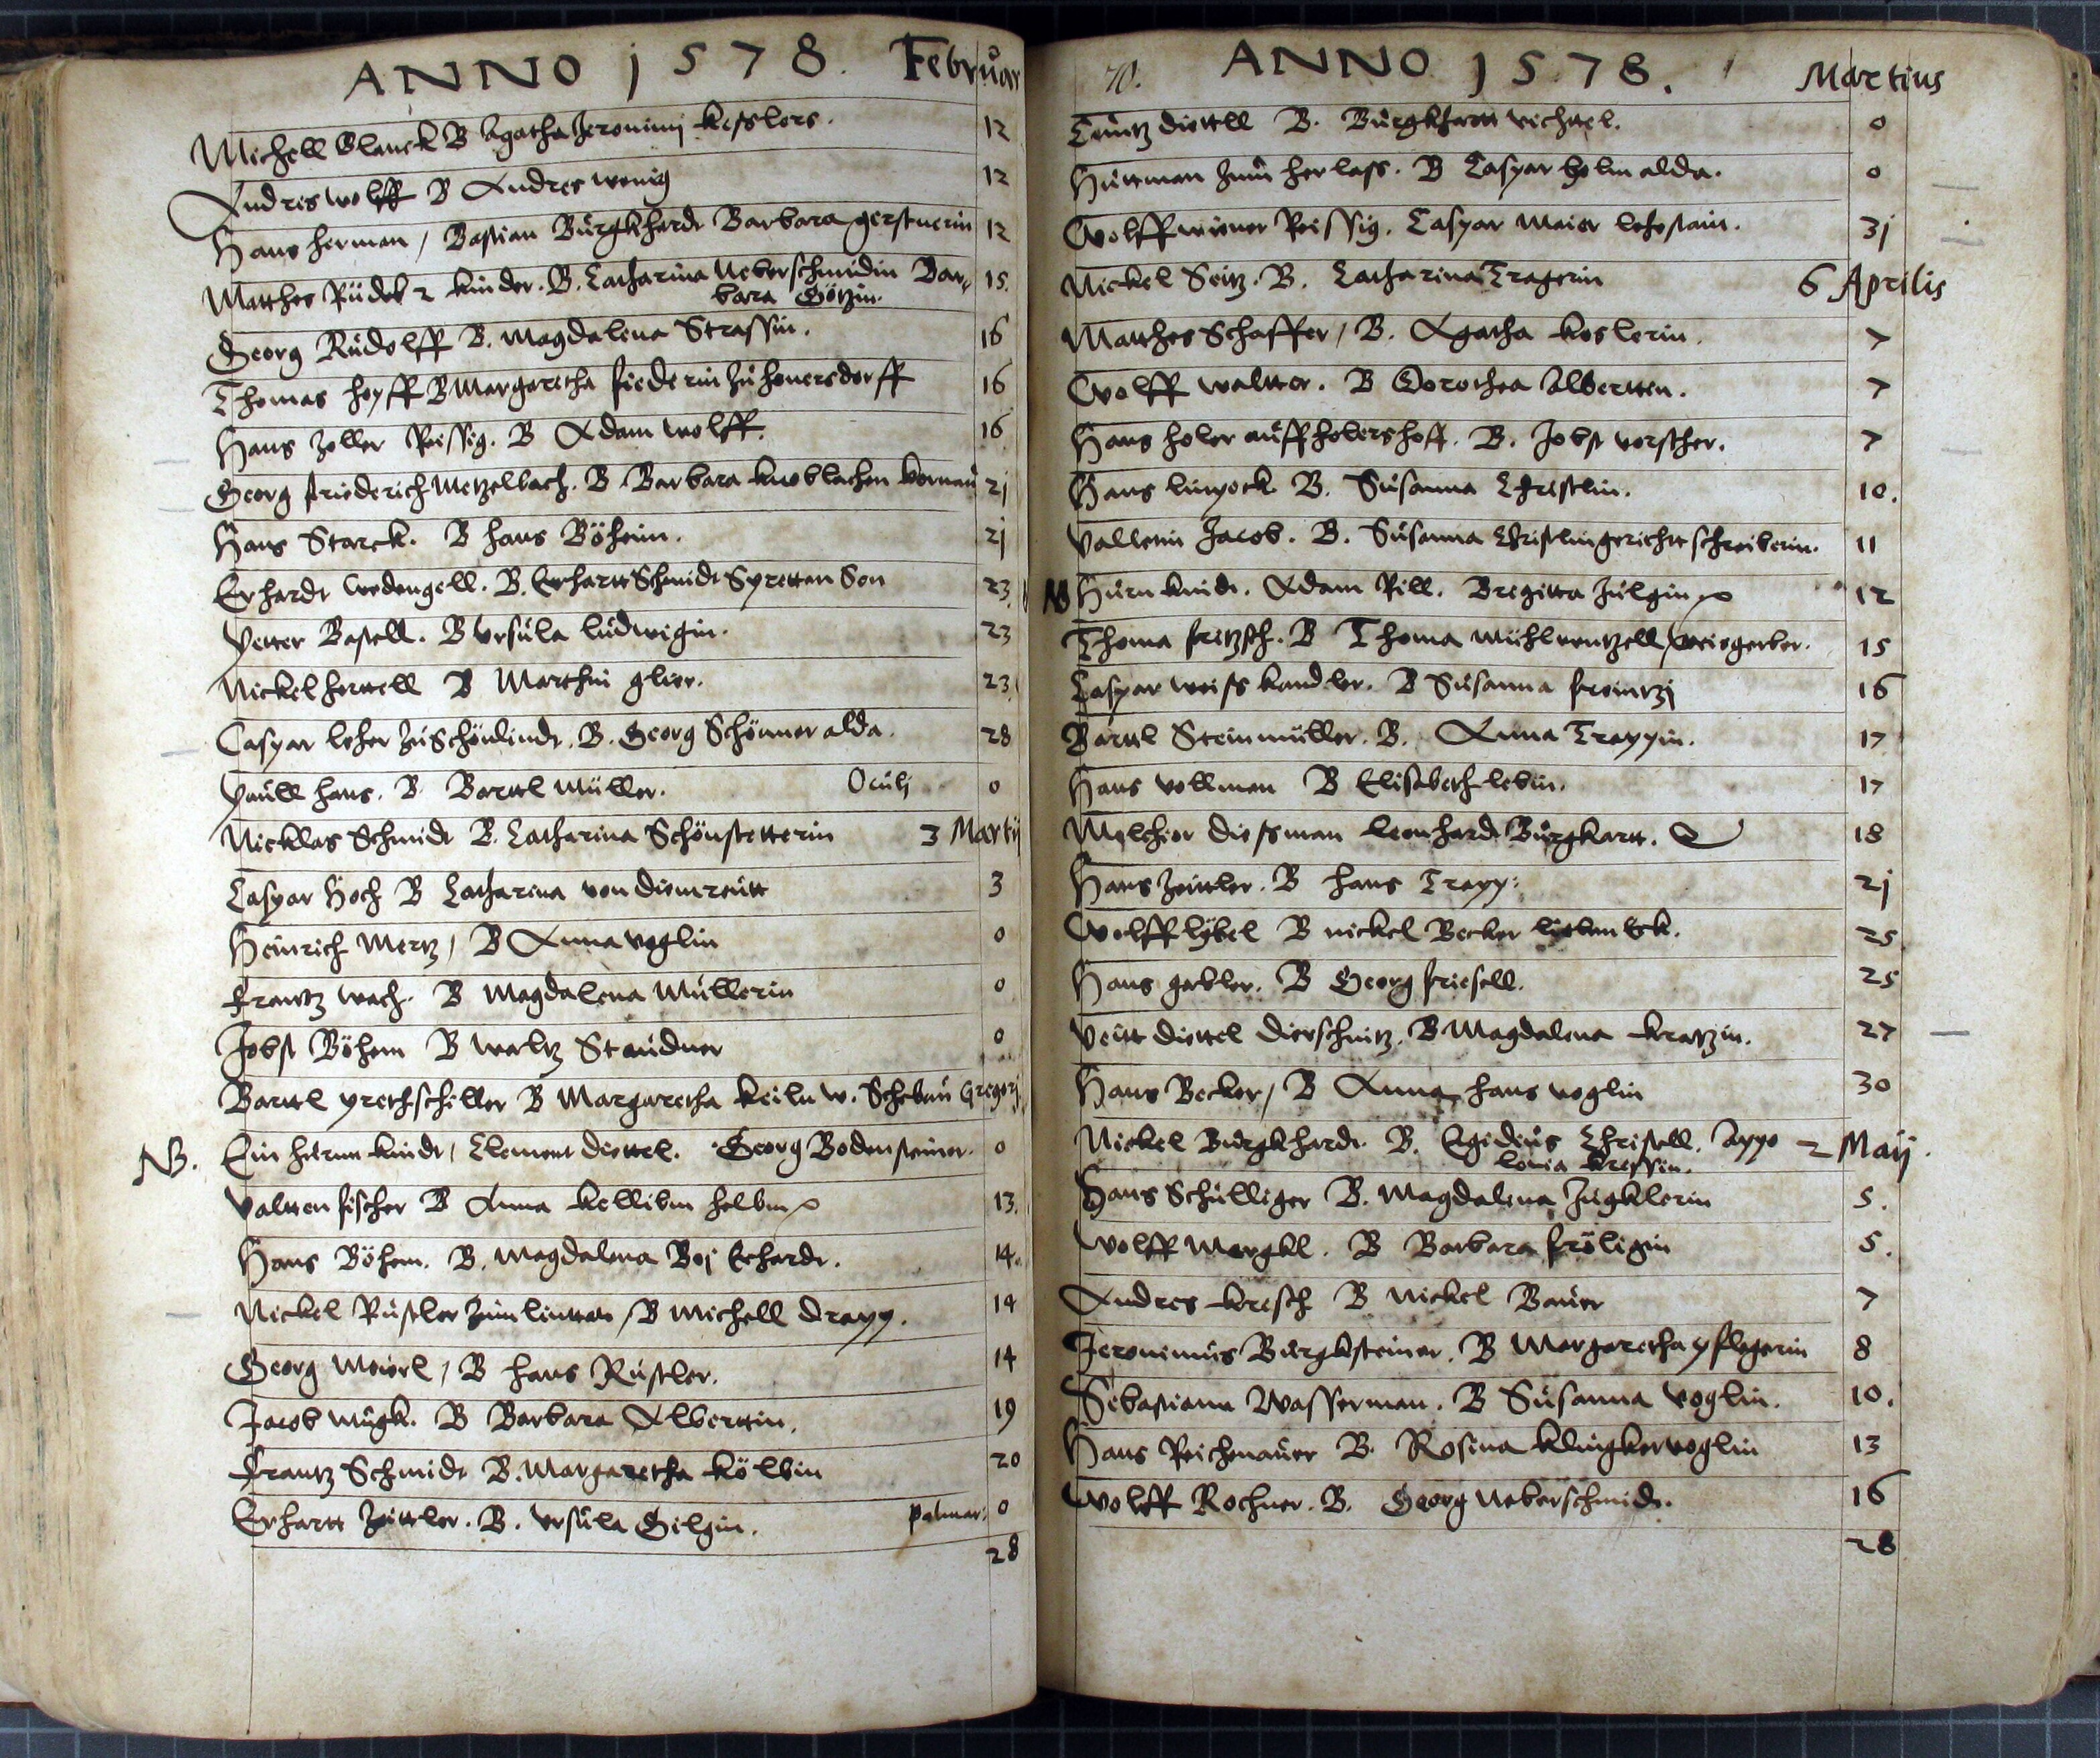 ANNO 1578. Februar
Michell Glanck B Agatha Jeronimj kesslers. 12
Andres wolff B Andres wenig 12
Hans herman / Bastian Bürgkhardt Barbara gerstnerin 12
Matthes Rüdel 2 kinder. B. Catharina Neberschmidin Bar= 15.
bara Götzin.
Georg Rudolff B. Magdalena Strassin. 16
Thomas heyff B Margaretha siederin zu houersdorff 16
Hans zoller Reissig. B Adam wolff. 16
Georg friederich Metzelbach. B Barbara knoblachen 2j
Hans Starck. B hans Böheim. 2j
Erhardt wedengell. B. Erhartt Schmidt Spretten Son 23.
Petter Bastell. B Ursula ludwigin. 23
Nickel herttell B Marthin glier. 23
Caspar leher zu Schönlindt. B. Georg Schönner alda. 28
Paull hans. B Barttl Müller. Oculj 0
Nicklas Schmidt B. Catharina Schönstetterin 3 Martij
Caspar Hoch B Catharina von diemreutt 3
Heinrich Mertz / B Anna voglin 0
Frantz wach. B Magdalena Müllerin 0
Jobst Böhem B weltz Staudner 0
Barttl pretschiller B Margaretha keiln w. Gregorj
NB. Ein hurnn kindt / Clement diettel. Georg Bodensteiner. 0
Valtten fischer B Anna 13.
Hans Böhem. B. Magdalena Boj Erhardt. 14.
Nickel Rüstler zum lintten / B Michell drapp. 14
Georg Meierl / B hans Rüstler. 14
Jacob Mugk. B Barbara Alberttin. 19
Frantz Schmidt B. Margaretha kölbin 20
Erhartt Zeittler. B. Ursula Gilgin. palmar: 0
28
70. ANNO 1578. Martius
Cuntz diettll B. Burgkhartt vichtel. 0
Huttman zum herlass. B Caspar helm alda. 0
Wolff wiener Reissig. Caspar Maier lehestain. 3j
Nickel Seitz. B. Catharina Tragerin 6 Aprilis
Matthes Schaffer / B. Agatha keslerin. 7
Wolff waltter. B Dorothea Albertten. 7
Hans holer auff holershoff. B. Jobst vorscher. 7
Hans linpock B. Susanna Christlin. 10.
Valtein Jacob. B. Susanna Christlin gerichtschreiberin. 11
NB Hurn kindt. Adam Rill. Bregitta Julgin 12
Thoma fritzsch. B Thoma Mühlwentzell weisgerber. 15
Caspar weiss kandler. B Susanna freintzj 16
Barttl Steinmüller. B. Anna Trappin. 17
Hans vollman B Elisabeth lebin. 17
Melchior diessman leonhardt Burgkartt. 18
Hans Zeittler. B hans Trapp: 2j
Wolff lybel B nickel Becker 25
Hans gebler. B Georg friesell. 25
Veitt diettel dierschnitz. B Magdalena kratzin. 27
Hans Becker / B Anna hans voglin 30
Nickel Burgkhardt. B. Egidius Christell. Appo 2 Maij.
lonia kressin.
Hans Schülliger B. Magdalena Jugklerin 5.
Wolff Mergkl. B Barbara fröligin 5.
Andres kresch B Nickel Bauer 7
Jeronimus Burgksteiner. B Margaretha pflegerin 8
Sebastiann Wasserman. B Susanna voglin. 10.
Hans Reichenauer B. Rosina klingkervoglin 13
Wolff Rochner. B. Georg Neberschmidt. 16
28